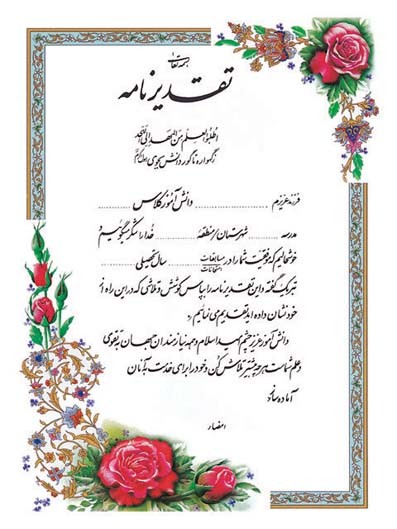 بسمه تعالی
تقدیرنامه
اطلبوا العلم من المهد الی اللحد
زگهواره تا گور دانش بجوی
فرزند عزیزم .................... دانش آموز کلاس ...............
مدرسه .......... شهرستان/منطقه .......... خدا را شکر میگوئیم و
خوشحالیم که موفقیت شما را در مسابقات امتحانات .......... سال تحصیلی
تبریک گفته و این تقدیرنامه را بپاس کوشش و تلاشی که در این راه از
خود نشان داده اید تقدیم می نمائیم
دانش آموز عزیز چشم امید اسلام و همه نیازمندان جهان به تقوی
و علم شماست هر چه بیشتر تلاش کن و خود را برای خدمت به آنان
آماده ساز
امضاء